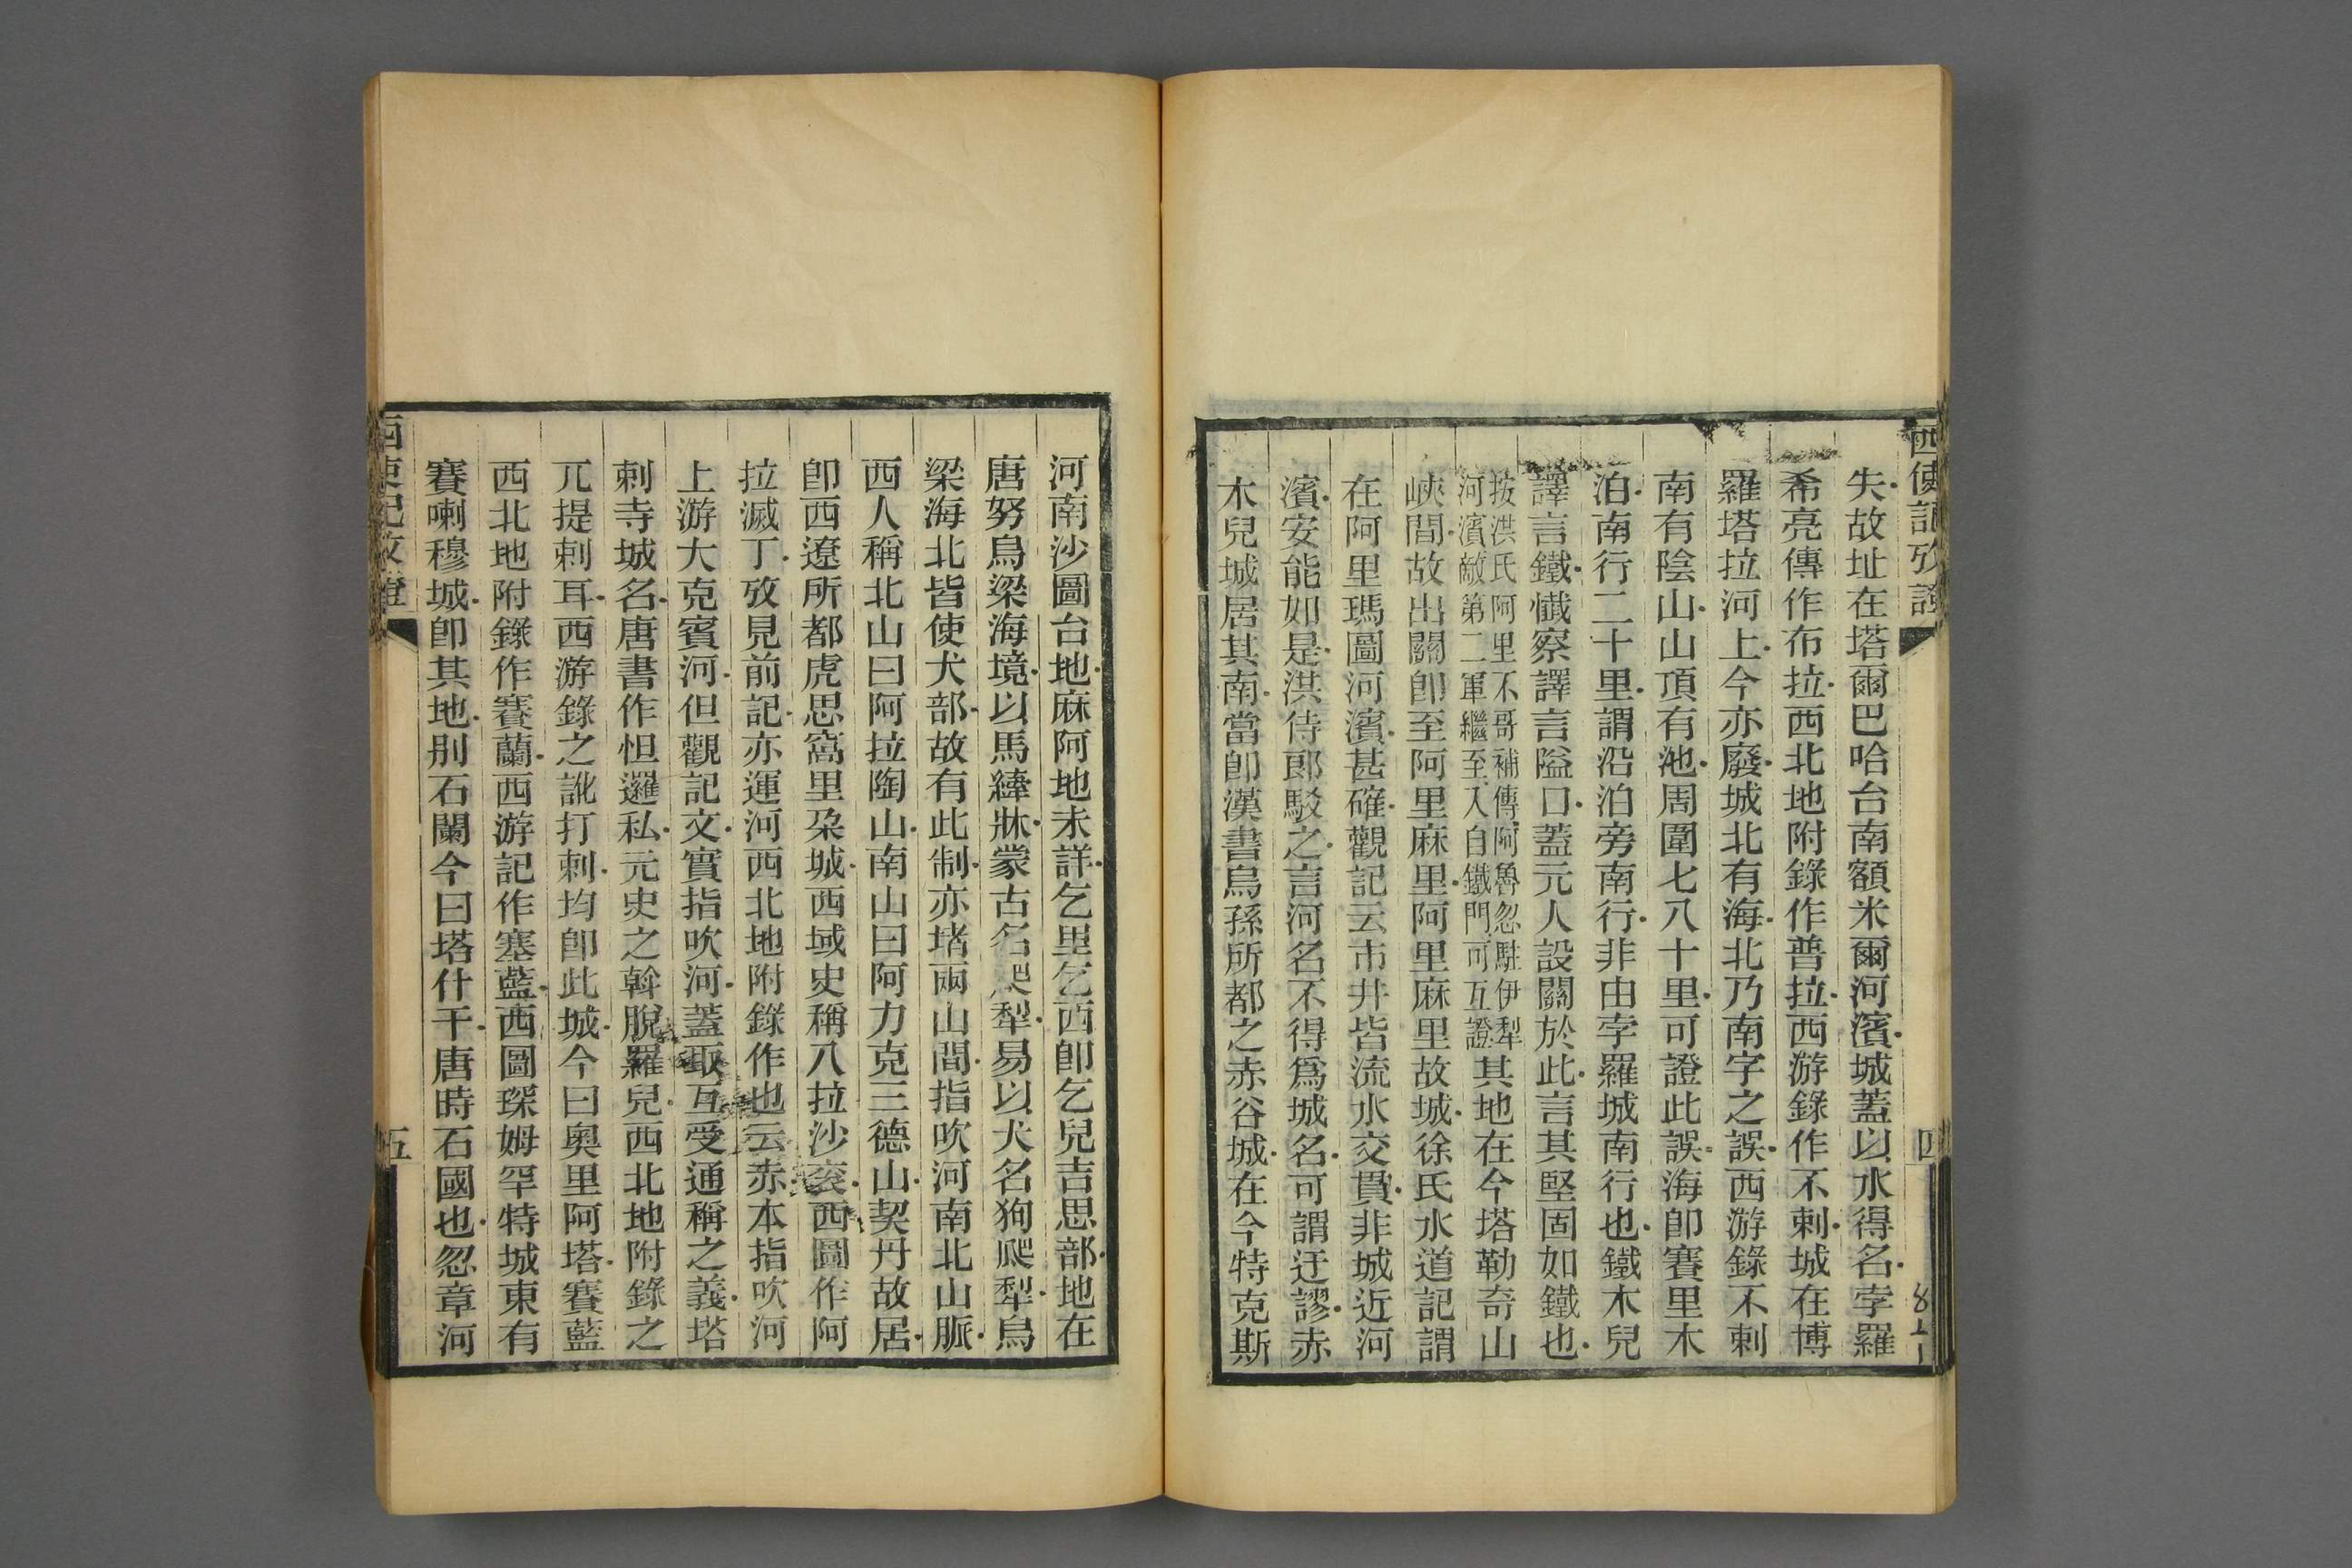 西使記攷證
四
失故址在塔爾巴哈台南額米爾河濱城蓋以水得名孛羅
希亮傳作布拉西北地附錄作普拉西游錄作不剌城在博
羅塔拉河上今亦廢城北有海北乃南字之誤西游錄不剌
南有陰山山頂有池周圍七八十里可證此誤海卽賽里木
泊南行二十里謂沿泊旁南行非由孛羅城南行也鐵木兒
譯言鐵懺察譯言隘口蓋元人設關於此言其堅固如鐵也
按洪氏阿里不哥補傳阿魯忽駐伊犁
河濱敵第二軍繼至入自鐵門可互證
其地在今塔勒奇山
峽間故出關卽至阿里麻里阿里麻里故城徐氏水道記謂
在阿里瑪圖河濱甚確觀記云市井皆流水交貫非城近河
濱安能如是洪侍郎駁之言河名不得爲城名可謂迂謬赤
木兒城居其南當卽漢書烏孫所都之赤谷城在今特克斯
河南沙圖台地麻阿地未詳乞里乞西卽乞兒吉思部地在
唐努烏梁海境以馬䋲牀蒙古名爬犁易以犬名狗爬犁烏
梁海北皆使犬部故有此制亦堵兩山間指吹河南北山脈
西人稱北山曰阿拉陶山南山曰阿力克三德山契丹故居
卽西遼所都虎思窩里朶城西域史稱八拉沙袞西圖作阿
拉滅丁攷見前記亦運河西北地附錄作也云赤本指吹河
上游大克賓河但觀記文實指吹河蓋取互受通稱之義塔
剌寺城名唐書作怛邏私元史之斡脫羅兒西北地附錄之
兀提剌耳西游錄之訛打剌均卽此城今曰奧里阿塔賽藍
西北地附錄作賽蘭西游記作塞藍西圖琛姆罕特城東有
賽喇穆城卽其地別石闌今曰塔什干唐時石國也忽章河
西使記攷證
五